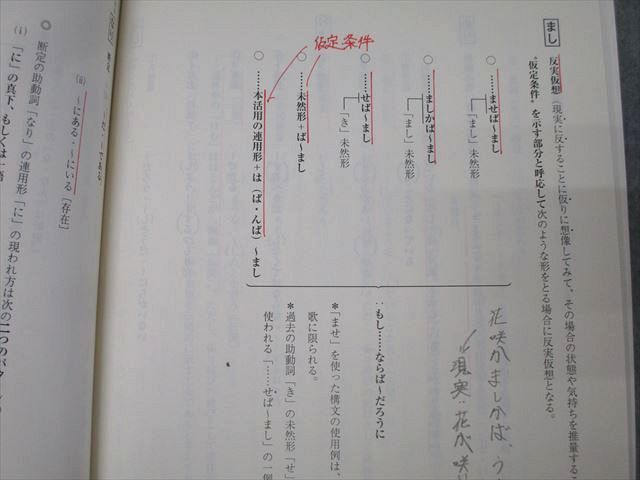 まし
反実仮想（現実に反することに仮りに想像してみて、その場合の状態や気持ちを推量するこ
“仮定条件”を示す部分と呼応して次のような形をとる場合に反実仮想となる。
○……ませば～まし
「まし」未然形
○……ましかば～まし
「まし」未然形
○……せば～まし
「き」未然形
○……未然形＋ば～まし
仮定条件
○……本活用の連用形＋は（ば・んば）～まし
∵もし……ならば～だろうに
＊「ませ」を使った構文の使用例は、
歌に限られる。
＊過去の助動詞「き」の未然形「せ」
使われる「……せば～まし」の一例
花咲かましかば、う
現実：花が咲
(ii)
～にある・～にいる［存在］
◎断定の助動詞「なり」の連用形「に」の現われ方は次の二つのパタ
(i)「に」の真下、もしくは一語